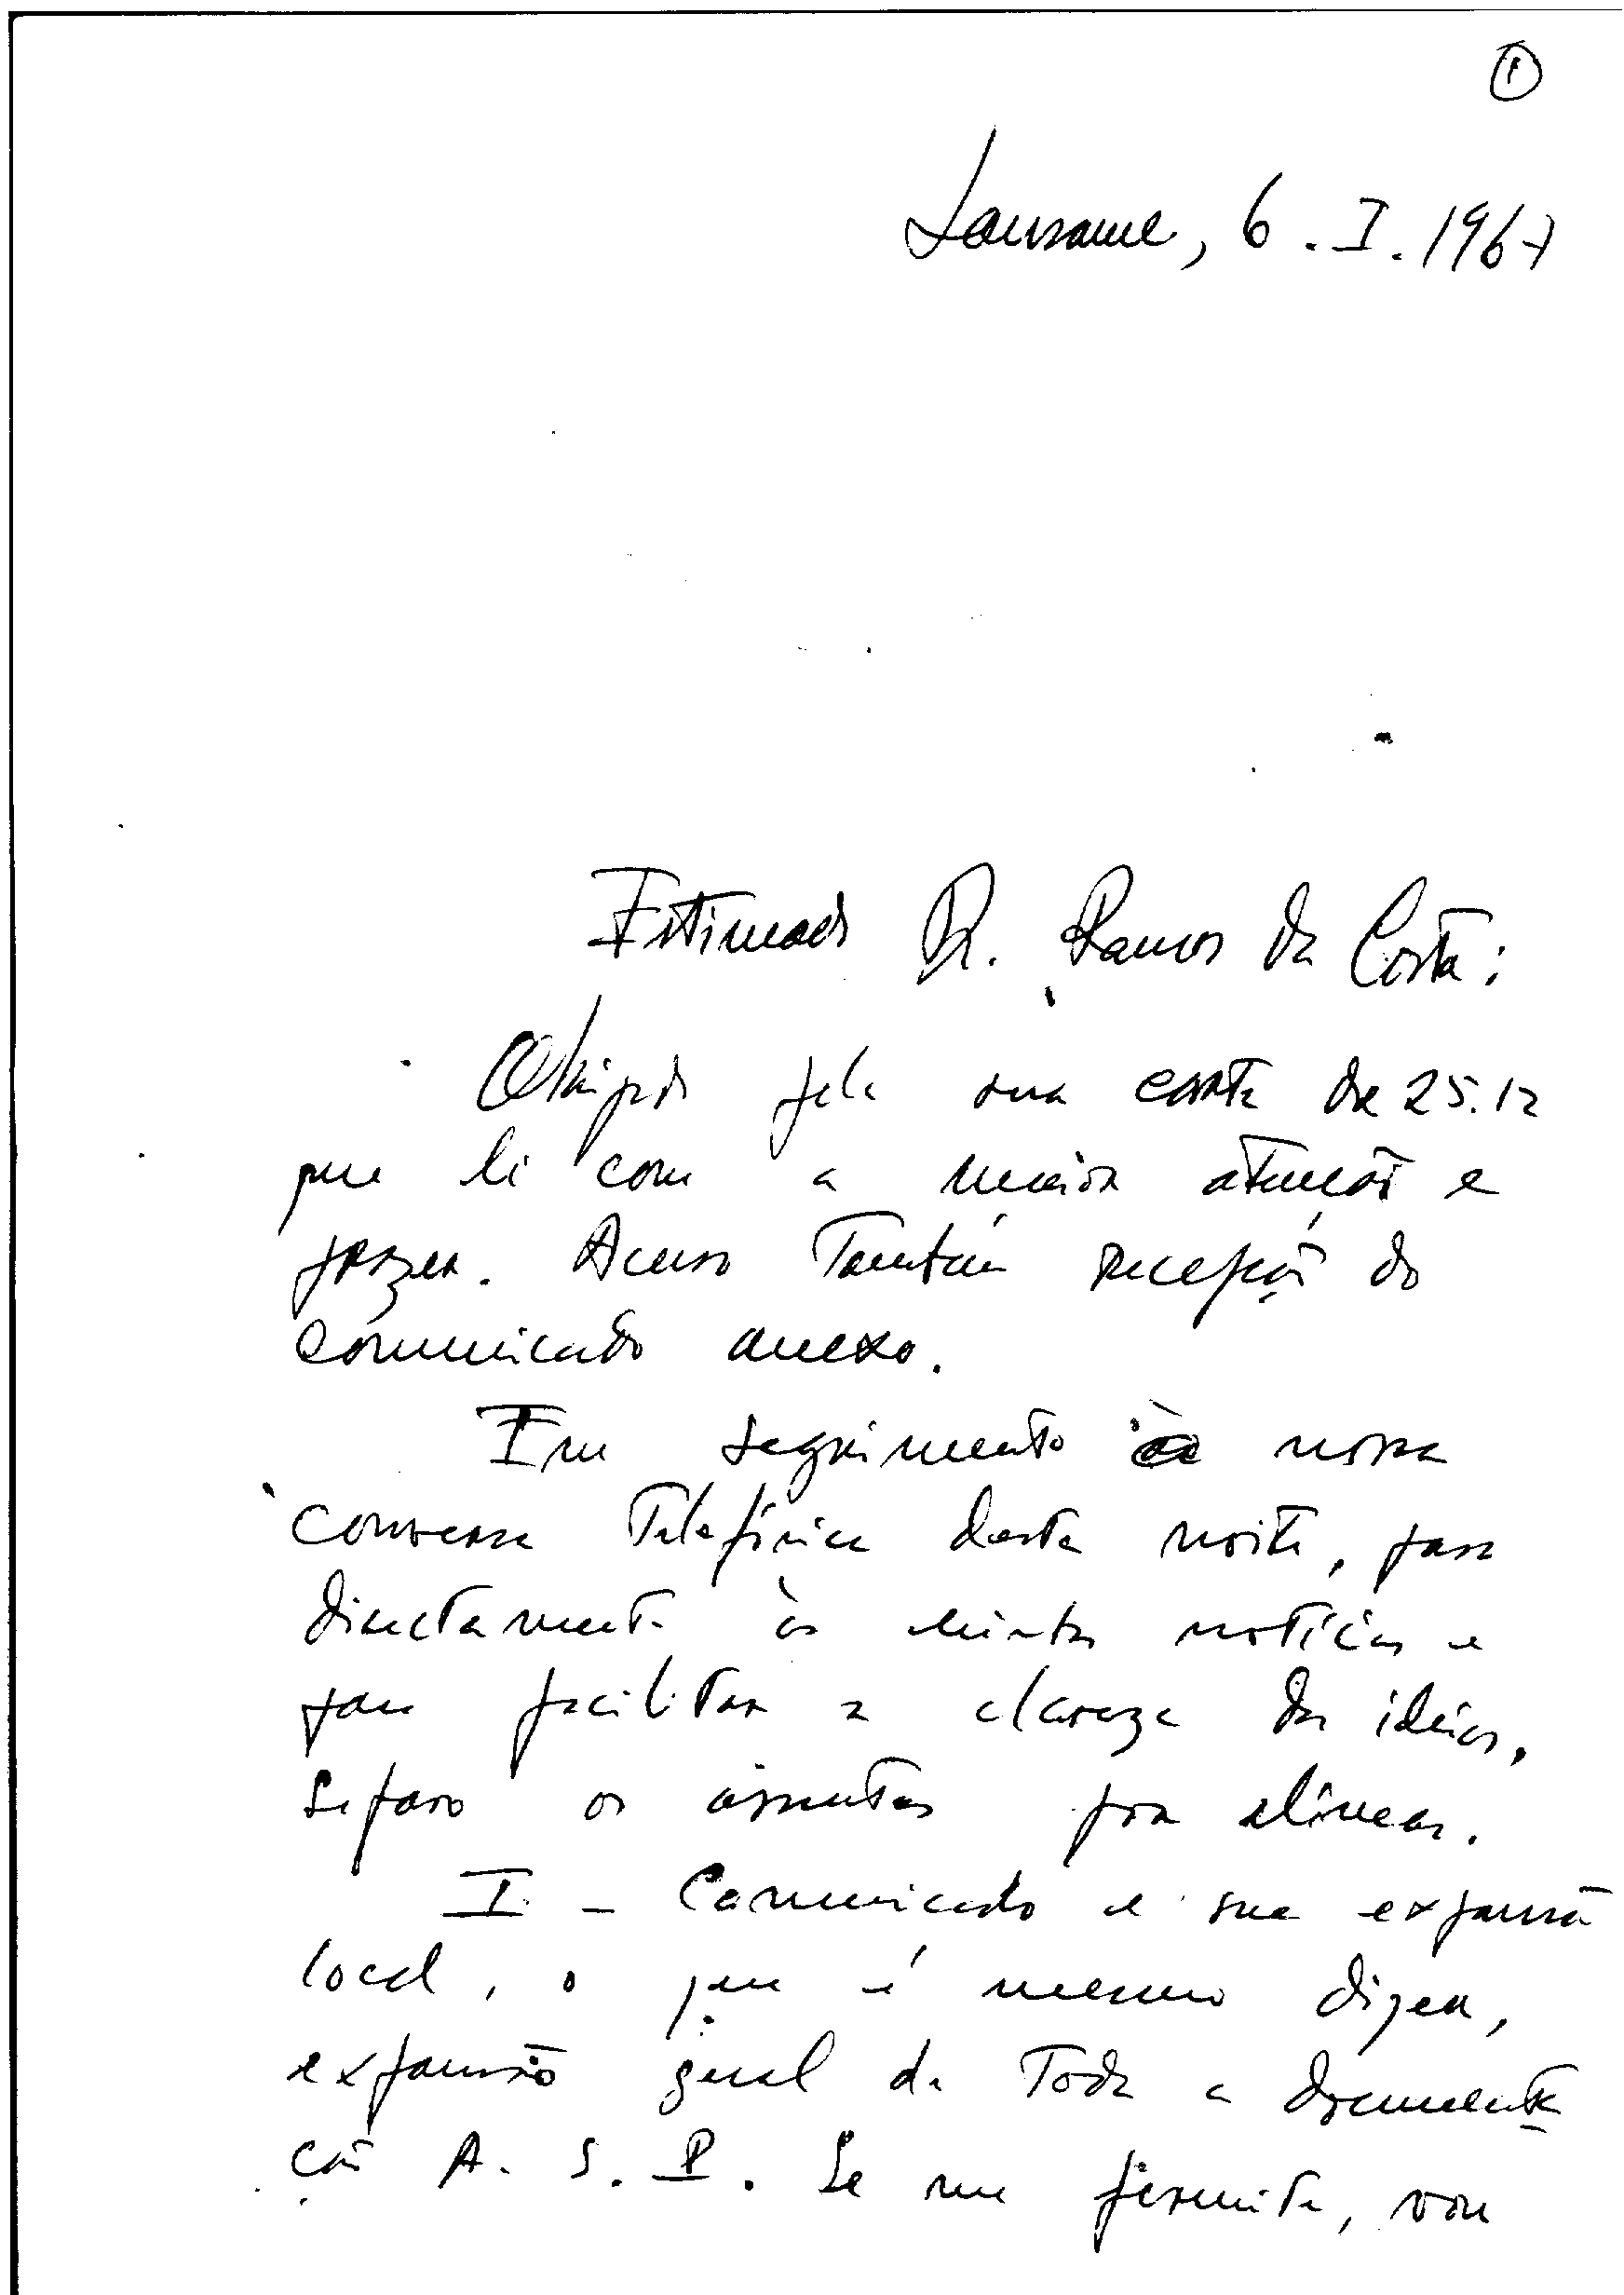 1
Lausanne, 6. I. 1967
Estimado Dr. Ramos da Costa:
Obrigado pela sua carta de 25.12
que li com a maior atenção e
prazer. Acuso também recepção do
comunicado anexo.
Em seguimento à nossa
conversa telefónica desta noite, passo
directamente às minhas notícias e
para facilitar a clareza das ideias,
separo os assuntos por alíneas.
I - Comunicado e sua expansão
local, o que é mesmo dizer,
expansão geral de toda a documenta
ção A. S. P. Se me permite, vou